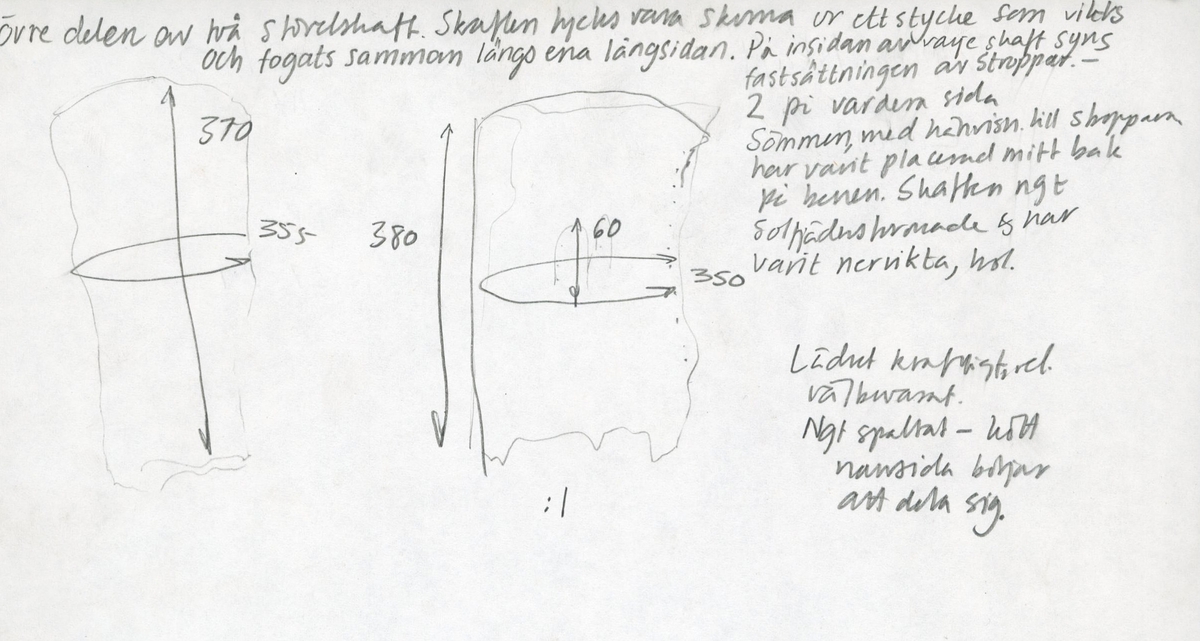 Övre delen av två stövelskaft. Skaften tycks vara skurna ur ett stycke som vikts
och fogats samman längs ena långsidan. På insidan av varje skaft syns
fastsättningen av stroppar. –
2 på vardera sida
Sömmen, med hänvisn. till stropparna
har varit placerad mitt bak
på benen. Skaften ngt
solfjädersformade & har
varit nervikta, hol.
370
355
380
60
350
:1
Lädret kraftigt, rel.
välbevarat.
Ngt spaltat – kött
narvsida börjar
att dela sig.